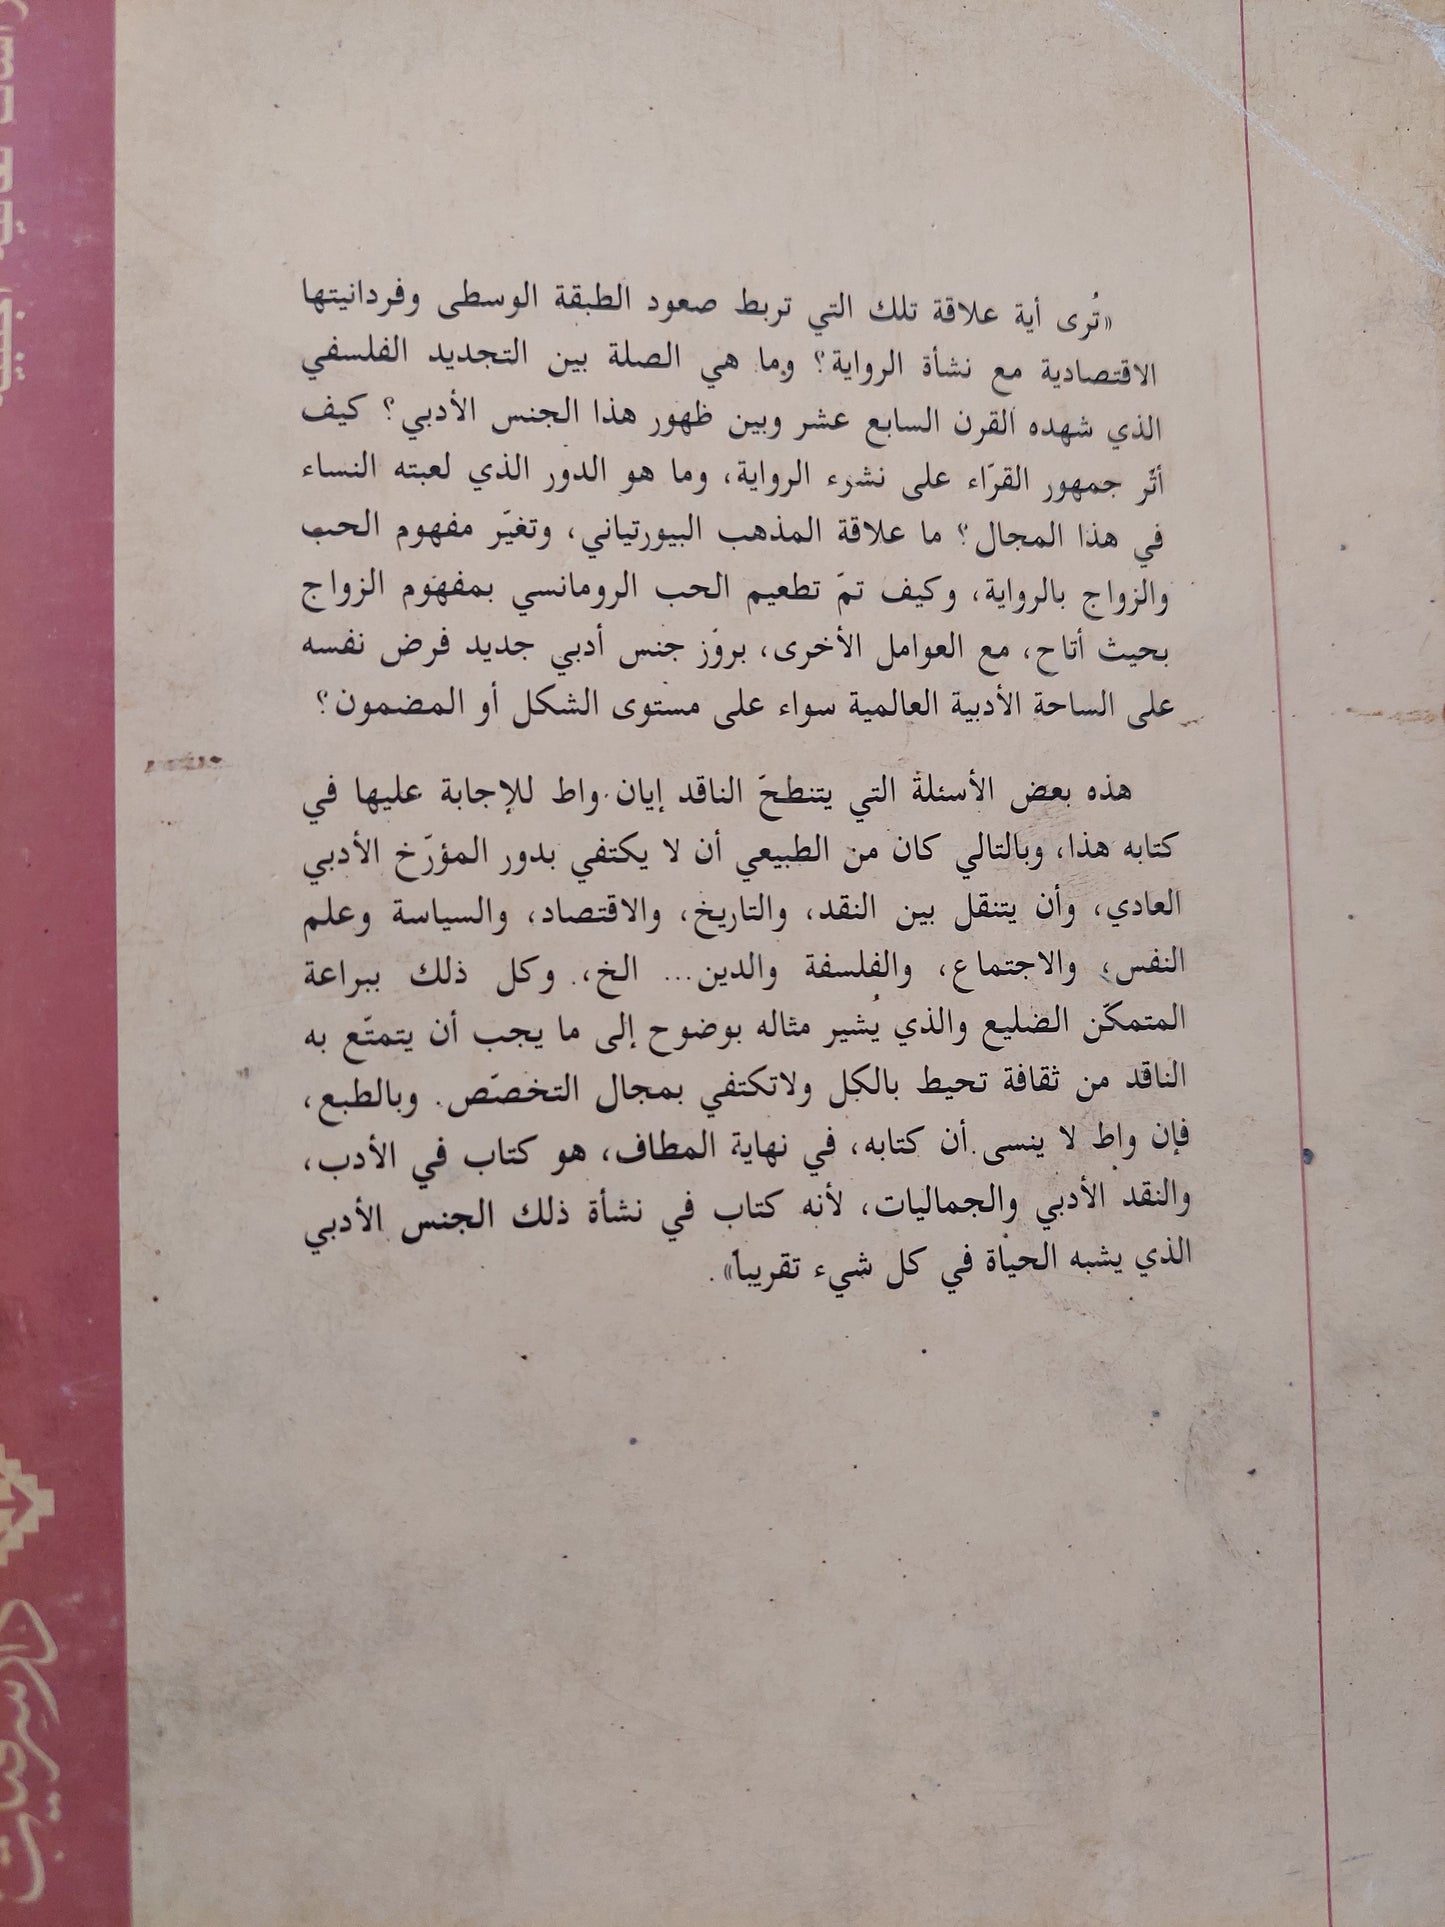 «تُرى أية علاقة تلك التي تربط صعود الطبقة الوسطى وفردانيتها
الاقتصادية مع نشأة الرواية؟ وما هي الصلة بين التجديد الفلسفي
الذي شهده القرن السابع عشر وبين ظهور هذا الجنس الأدبي؟ كيف
أثّر جمهور القرّاء على نشوء الرواية، وما هو الدور الذي لعبته النساء
في هذا المجال؟ ما علاقة المذهب البيورتياني، وتغيّر مفهوم الحب
والزواج بالرواية، وكيف تمّ تطعيم الحب الرومانسي بمفهوم الزواج
بحيث أتاح، مع العوامل الأخرى، بروز جنس أدبي جديد فرض نفسه
على الساحة الأدبية العالمية سواء على مستوى الشكل أو المضمون؟
هذه بعض الأسئلة التي يتنطحّ الناقد إيان واط للإجابة عليها في
كتابه هذا، وبالتالي كان من الطبيعي أن لا يكتفي بدور المؤرّخ الأدبي
العادي، وأن يتنقل بين النقد، والتاريخ، والاقتصاد، والسياسة وعلم
النفس، والاجتماع، والفلسفة والدين... الخ، وكل ذلك ببراعة
المتمكّن الضليع والذي يُشير مثاله بوضوح إلى ما يجب أن يتمتّع به
الناقد من ثقافة تحيط بالكل ولاتكتفي بمجال التخصّص. وبالطبع،
فإن واط لا ينسى أن كتابه، في نهاية المطاف، هو كتاب في الأدب،
والنقد الأدبي والجماليات، لأنه كتاب في نشأة ذلك الجنس الأدبي
الذي يشبه الحياة في كل شيء تقريباً».
دار شرقيات